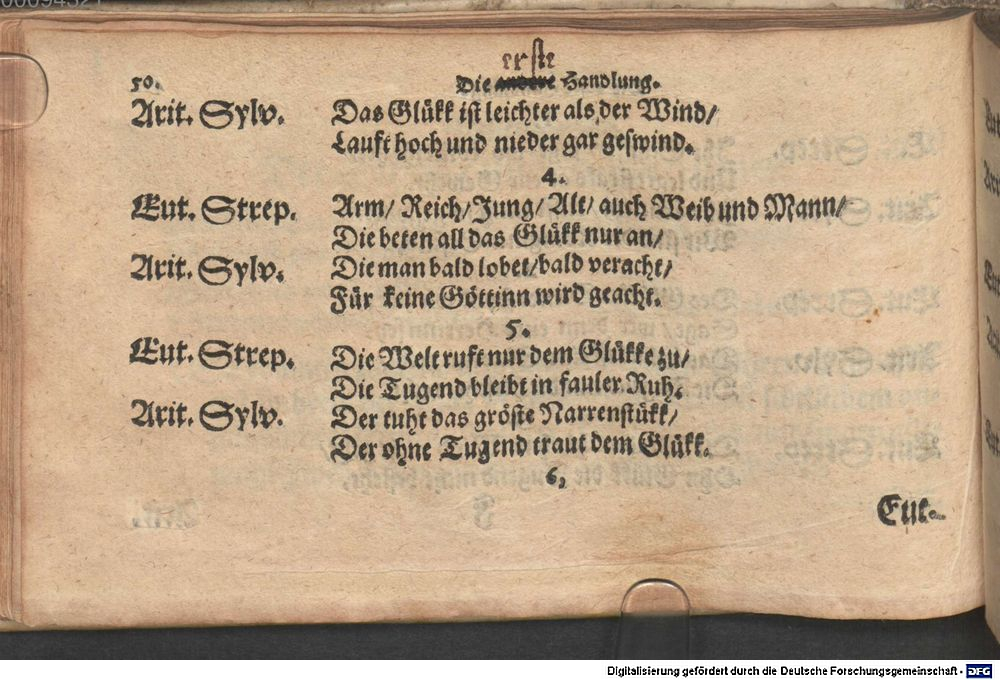 erste
50. Die andere Handlung.
Arit. Sylv. Das Glükk ist leichter als der Wind/
Lauft hoch und nieder gar geswind.
4.
Eut. Strep. Arm/ Reich/ Jung/ Alt/ auch Weib und Mann/
Die beten all das Glükk nur an/
Arit. Sylv. Die man bald lobet/ bald veracht/
Für keine Göttinn wird geacht.
5.
Eut. Strep. Die Welt ruft nur dem Glükke zu/
Die Tugend bleibt in fauler Ruh.
Arit. Sylv. Der tuht das gröste Narrenstükk/
Der ohne Tugend traut dem Glükk.
6,
Eut.
Digitalisierung gefördert durch die Deutsche Forschungsgemeinschaft - DFG